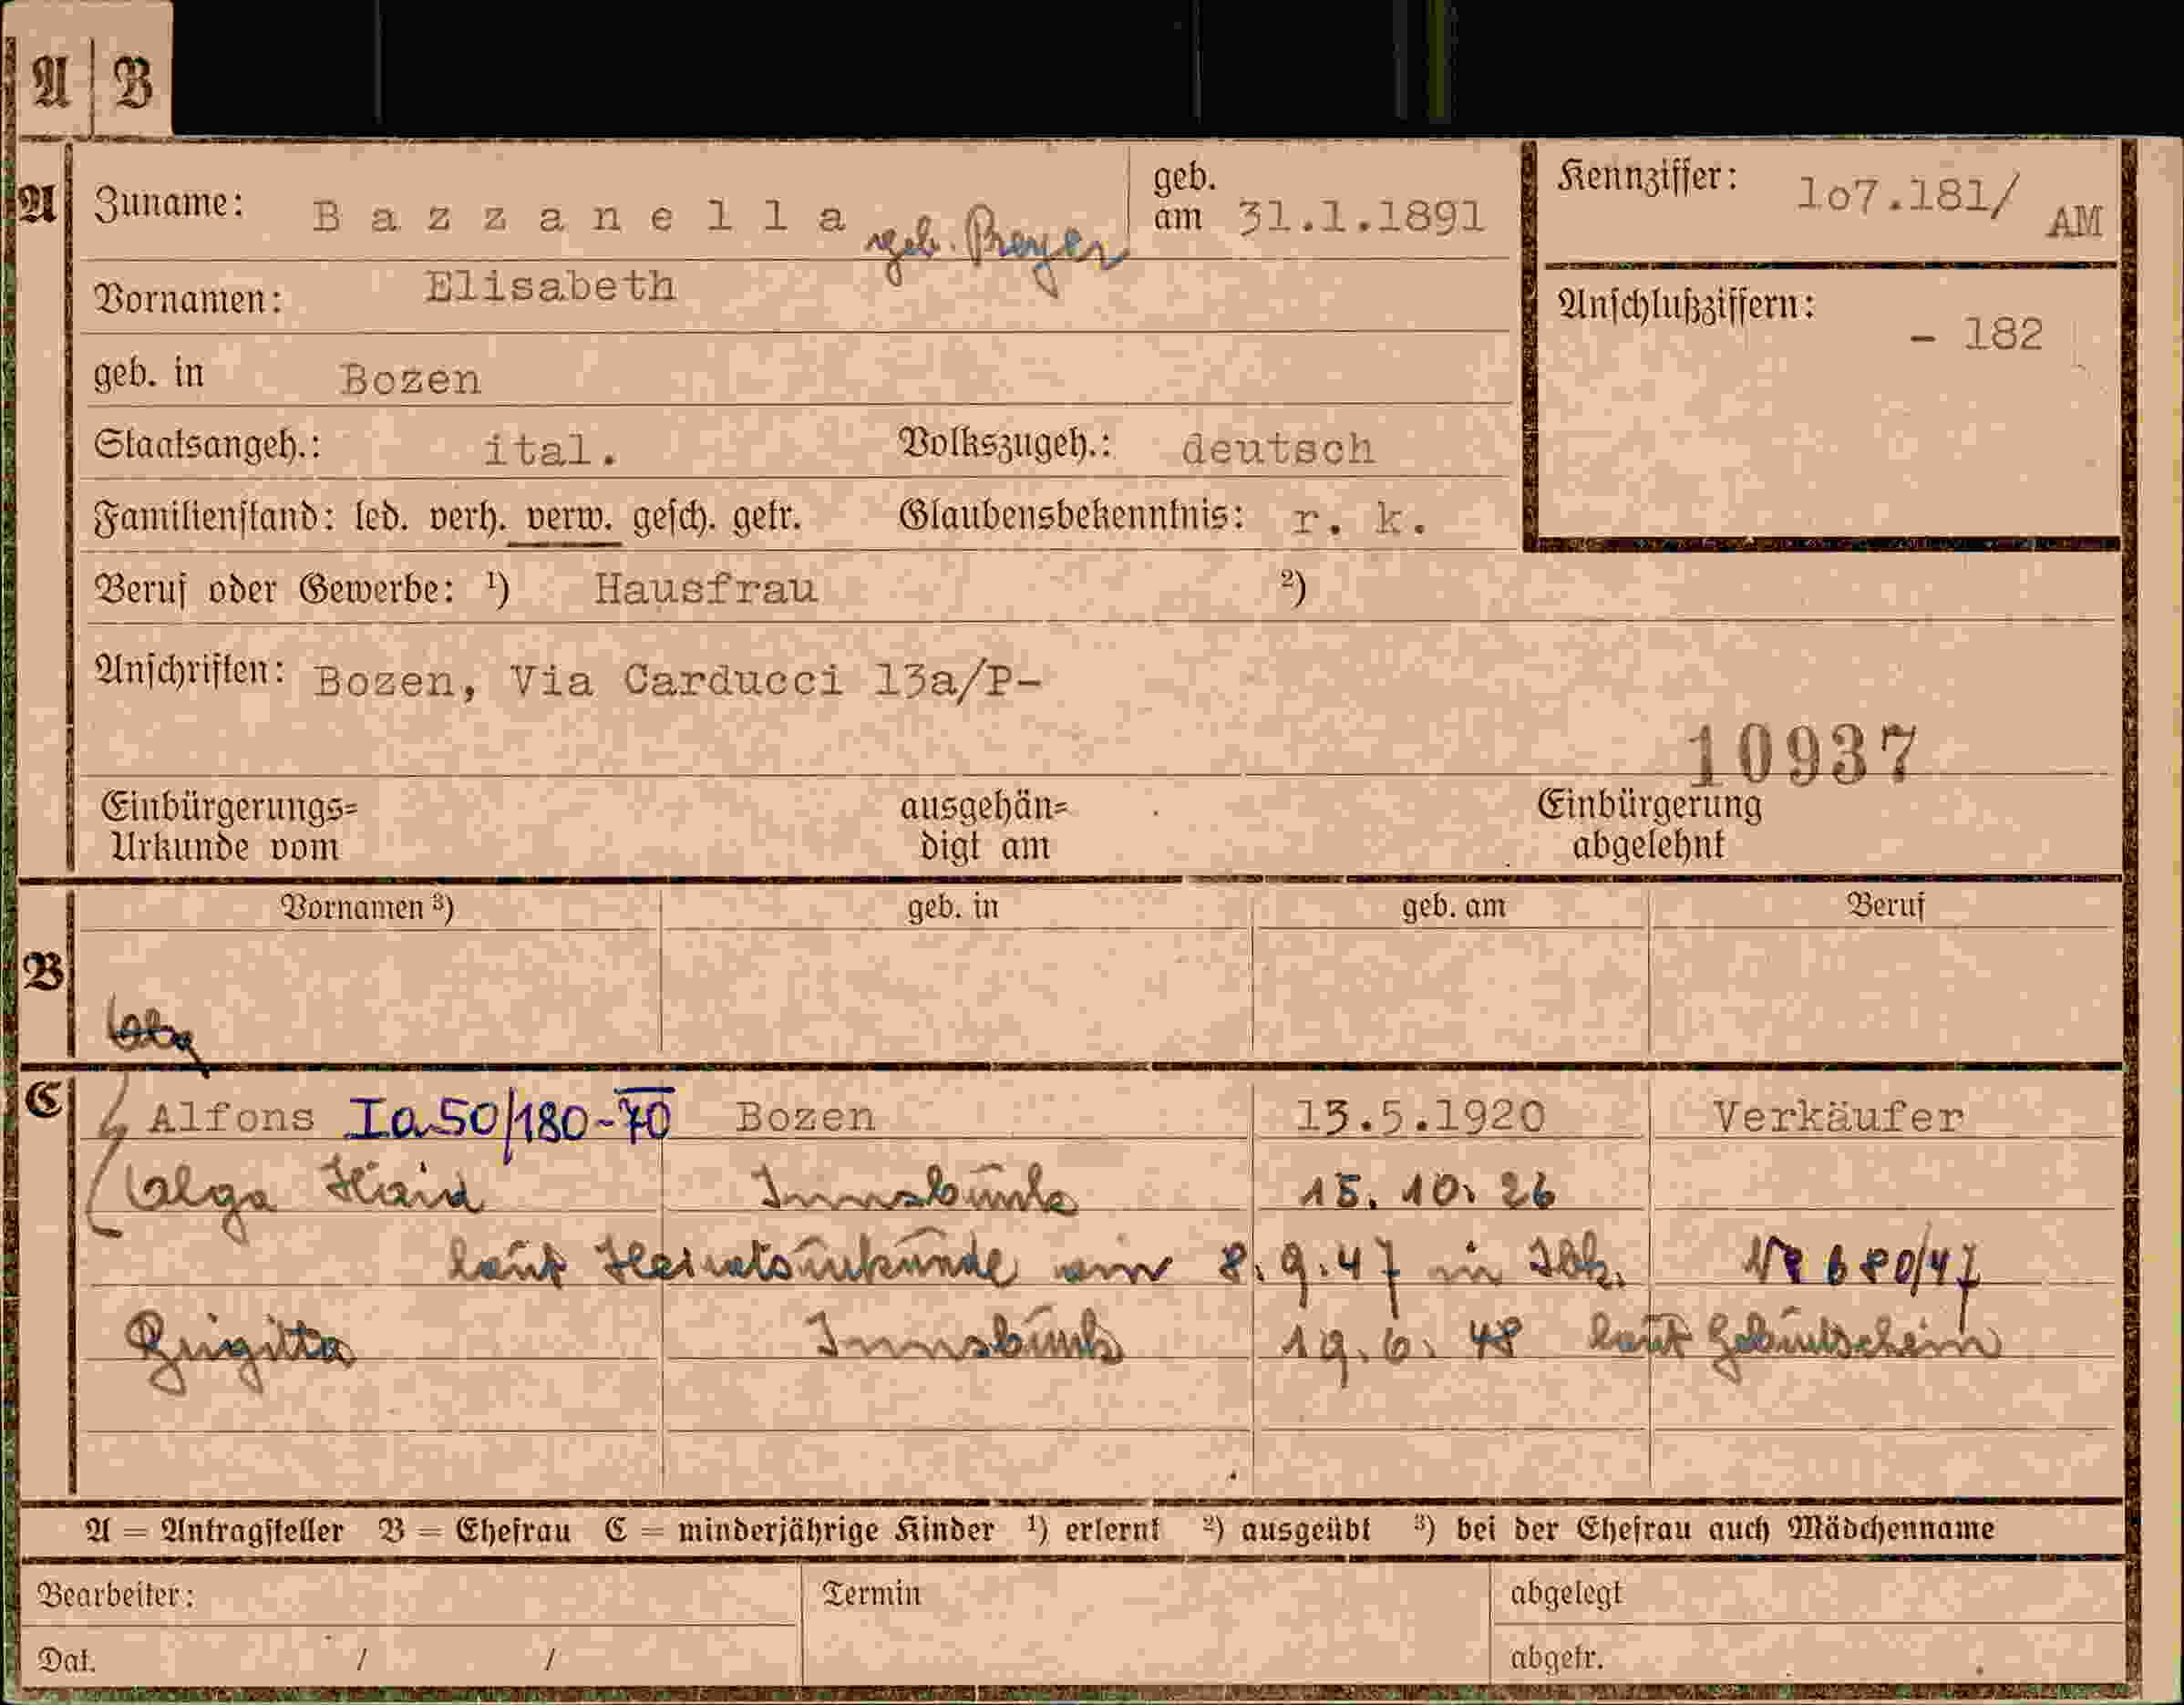 A B
A Zuname: Bazzanella geb. Preyer geb. am 31.1.1891 Kennziffer: 1o7.181/ AM
Vornamen: Elisabeth Anschlußziffern: - 182
geb. in Bozen
Staatsangeh.: ital. Volkszugeh.: deutsch
Familienstand: led. verh. verw. gesch. getr. Glaubensbekenntnis: r. k.
Beruf oder Gewerbe: ¹) Hausfrau ²)
Anschriften: Bozen, Via Carducci 13a/P-
10937
Einbürgerungs= Urkunde vom ausgehän= digt am Einbürgerung abgelehnt
Vornamen ³) geb. in geb. am Beruf
B
Olg
C Alfons Ia50/180-70 Bozen 13.5.1920 Verkäufer
Olga Haid Innsbruck 15. 10. 26
laut Heiratsurkunde am 8.9.47 in Ibk. Nr 680/47
Brigitta Innsbruck 19. 6. 48 laut Geburtschein
A = Antragsteller B = Ehefrau C = minderjährige Kinder ¹) erlernt ²) ausgeübt ³) bei der Ehefrau auch Mädchenname
Bearbeiter: Termin abgelegt
Dat. / / abgetr.